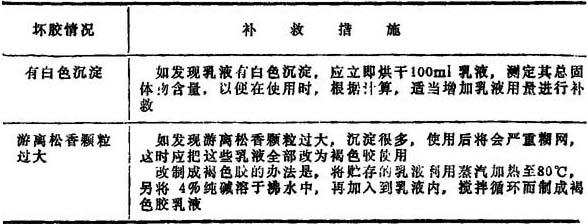 坏胶情况
补救措施
有白色沉淀
如发现乳液有白色沉淀，应立即烘干100ml乳液，测定其总固
体物含量，以便在使用时，根据计算，适当增加乳液用量进行补
救
游离松香颗粒
过大
如发现游离松香颗粒过大，沉淀很多，使用后将会严重糊网，
这时应把这些乳液全部改为褐色胶使用
改制成褐色胶的办法是，将贮存的乳液利用蒸汽加热至80℃，
另将4%纯碱溶于沸水中，再加入到乳液内，搅拌循环而制成褐
色胶乳液